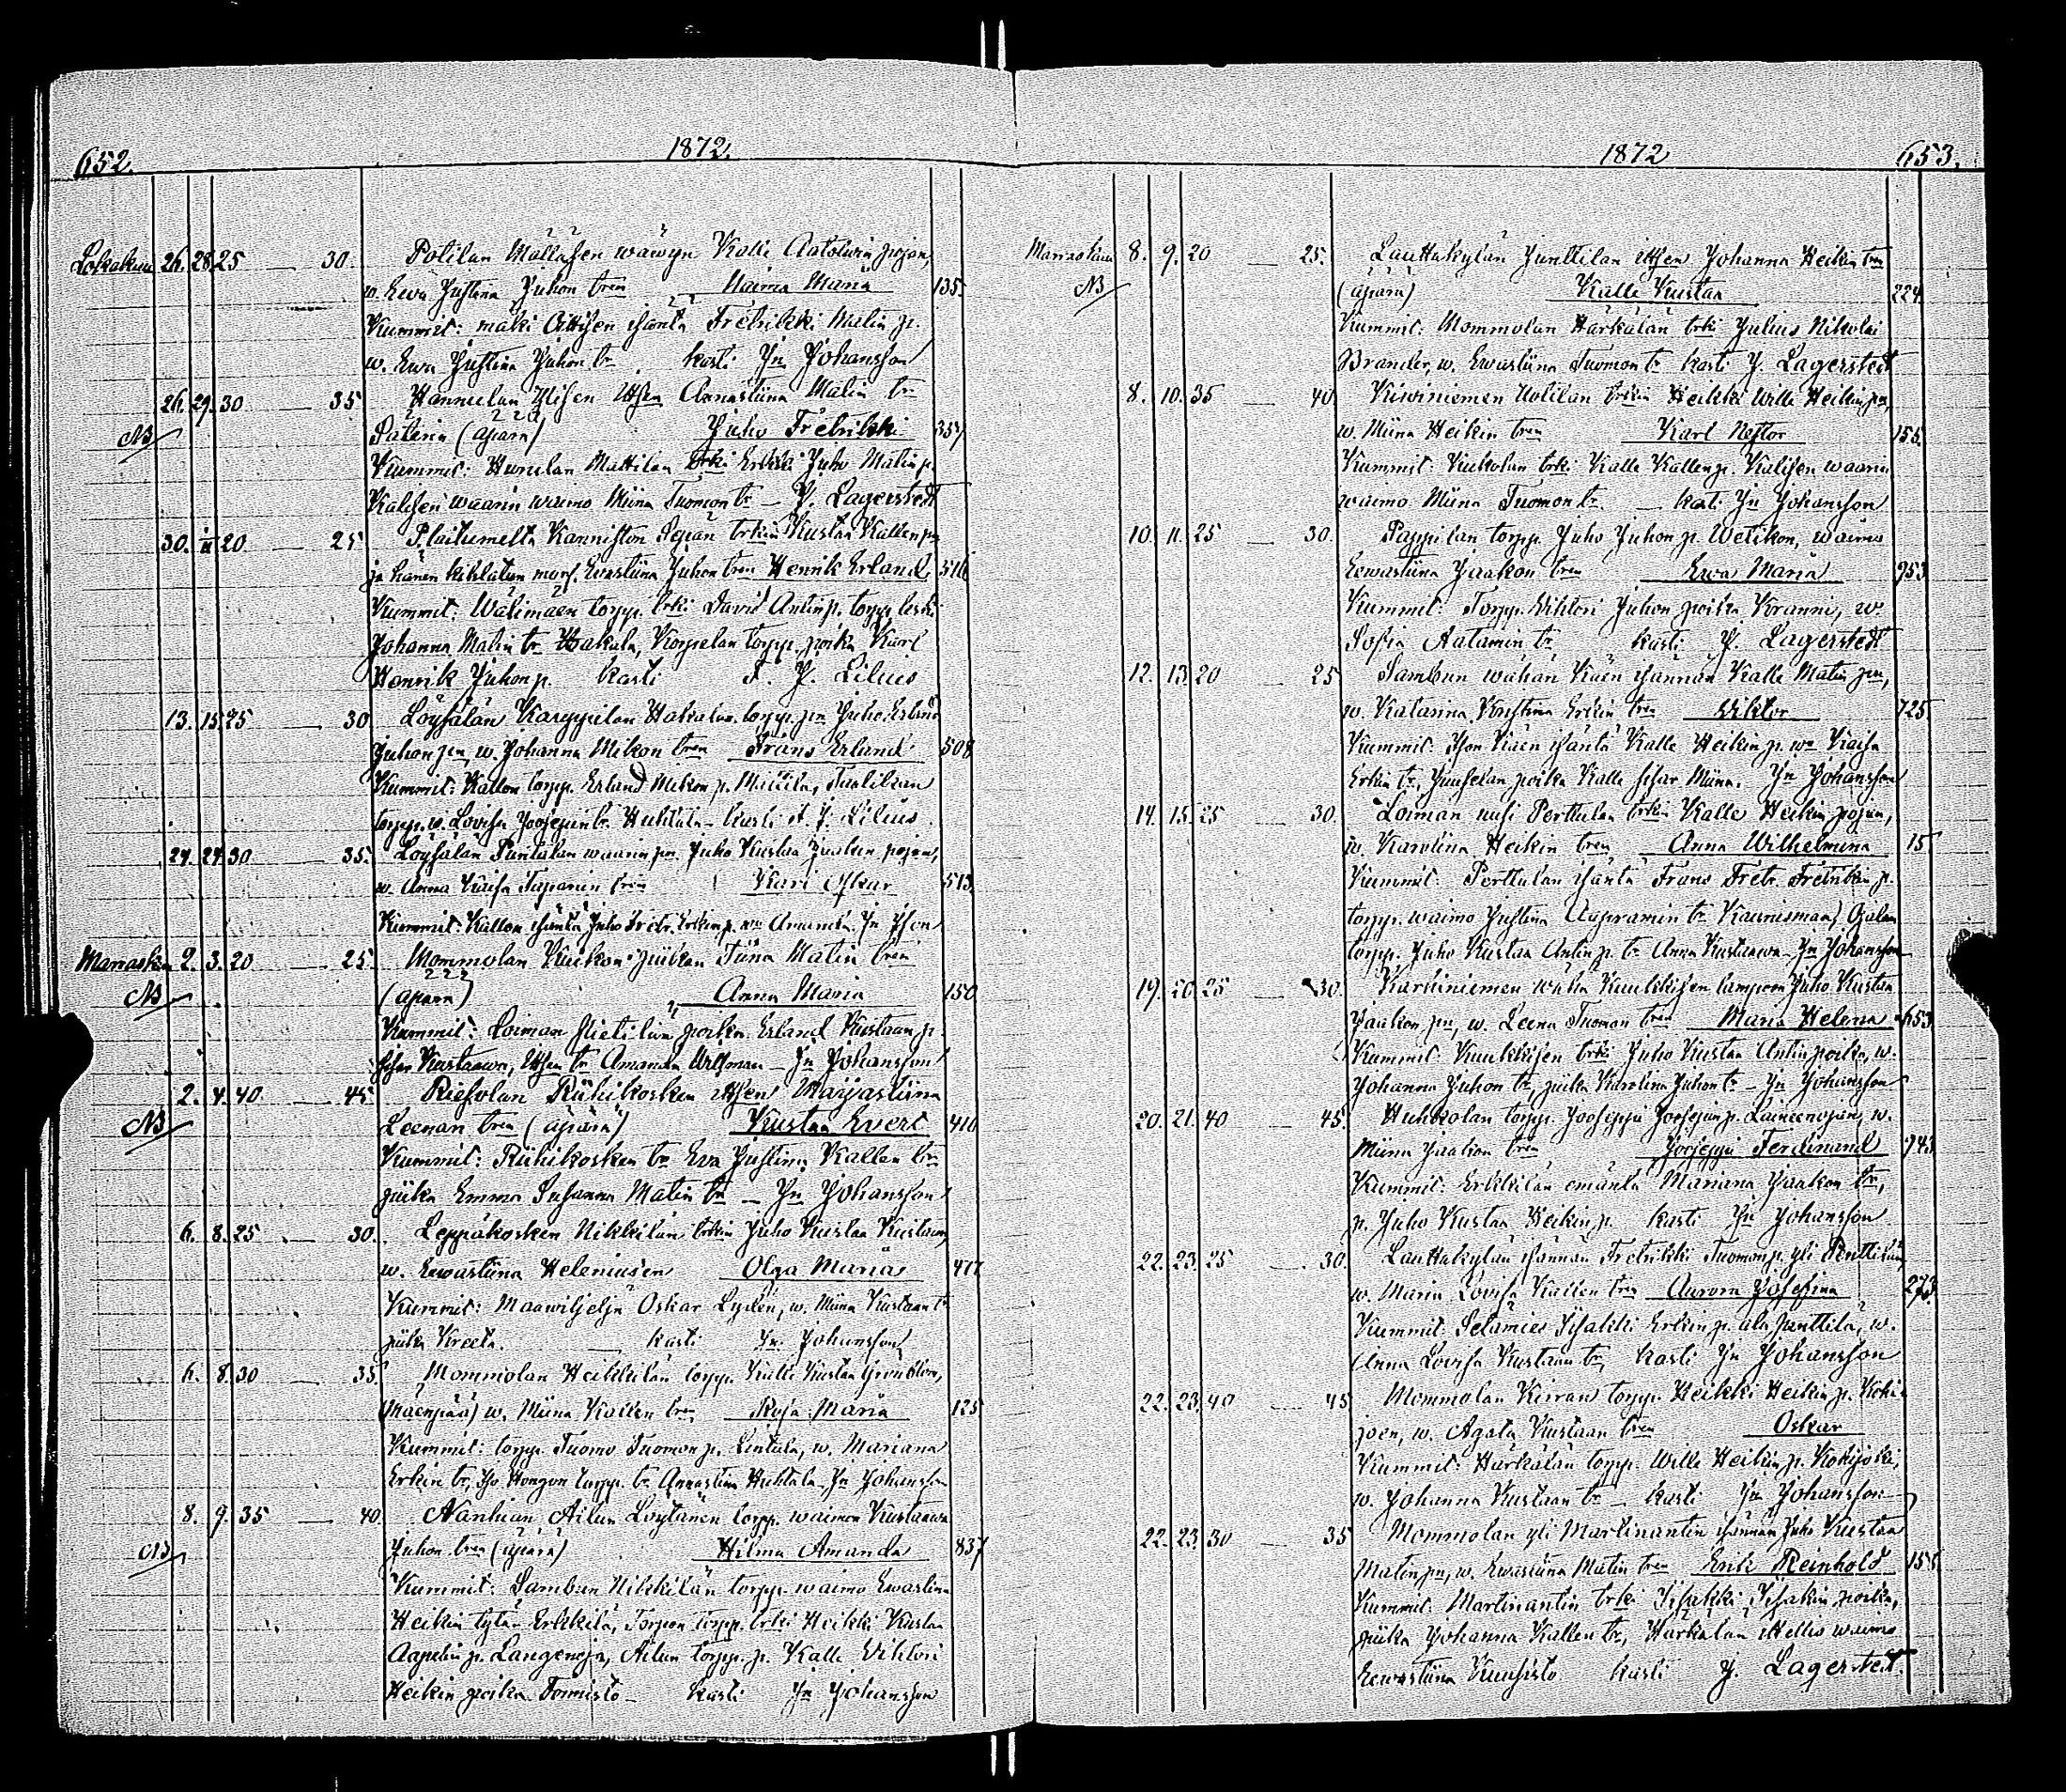 652. 1872.
Lokakuu 26. 28. 25 — 30 Potilan Mällisen wäwyn Kalle Antolwin pojan,
w. Ewa Justina Juhon tren Maria 135.
Kummit: mäki isäntä Fretrikki Matin p.
w. Ewa Justina Juhon tr kasti Jn Johansson
26. 29. 30 — 35 Hannulan Ylisen itsen Annastiina Matin tr
NB (äpärä) Juho Fretrikki 357
Kummit: Hurulan Mattilan trki Erkki Juho Matin p.
Kalisen waarin waimo Miina Tuomon tr — J. Lagerstedt
30. 20 — 25 Kanniston Sepän trkin Kustaa Kallen pn
ja hänen kihlatun mors. Ewastiina Juhon tren Henrik Erland 516
Kummit: Wälimäen torpp. trki David Antin p. torpp. leski
Johanna Matin tr Hakula, Korpelan torpp. poika Karl
Henrik Juhon p. kasti F. J. Lilius
13. 15. 25 — 30 Löysälän Karppilan Hakalan torpp. pn Juho Erland
Juhon pn, w. Johanna Mikon tren Frans Erland 508
Kummit: Kallon torpp. Erland Mikon p. Mattila,
torpp. w. Lovisa Joosepin tr Huhtala — kasti F. J. Lilius
27. 27. 30 — 35 Löysälän Puntalan waarin pn. Juho Kustaa pojan,
w. Anna Kaisa Tapanin tren Karl Oskar 513
Kummit: Kallon isäntä Juho Fretr. Erkin p. wo Amanda. Jn Json
Marraskuu 2. 3. 20 — 25 Mommolan Kuikon piikan Tiina Matin tren
NB (äpärä) Anna Maria 150
Kummit: Loiman poika Erland Kustaan p.
sisar Kustaawa, itsen tr Amanda — Jn Johansson
2. 4. 40 — 45 Riesolan Riihikosken itsen Marjastiina
NB Leenan tren (äpärä) Kustaa Evert 410
Kummit: Riihikosken tr Eva Justina Kallen tr
piika Emma Susanna Matin tr — Jn Johansson
6. 8. 25 — 30. Leppäkosken Nikkilän trkin Juho Kustaa Kustaan,
w. Ewastiina Heleniusen Olga Maria 477
Kummit: Maawiljeljä Oskar Lydén, w. Miina Kustaan tr
piika Kreeta. — kasti Jn Johansson
6. 8. 30 — 35. Mommolan Heikkilän torpp. Kalle Kustaa Grönblom,
(Mäenpää) w. Miina Kallen tren Rosa Maria 125
Kummit: torpp. Tuomo Tuomon p. Lintula, w. Mariana
Erkin tr, Iso Hongon torpp. tr. Annastiina Huhtala — Jn Johansson
8. 9. 35 — 40. Nanhian Ailun Löytänen torpp. waimon Kustaawa
NB Juhon tren (äpärä) Hilma Amanda 837
Kummit: Sambun Nikkilän torpp. waimo Ewastiina
Heikin tytär Erkkilä, torpp. trki Heikki Kustaa
Aapelin p. Langenoja, Ailun torpp. p. Kalle Viktori
Heikin poika Tormisto — kasti Jn Johansson
1872 653.
Marraskuu 8. 9. 20 — 25. Lauttakylän Junttilan itsen Johanna Heikin tren
NB (äpärä) Kalle Kustaa 224
Kummit: Mommolan Härkälän trki Julius Nikolai
Brander, w. Ewastiina Tuomon tr kasti J. Lagerstedt
8. 10. 35 — 40 Kiwiniemen Uotilan trkin Heikki Wille Heikin pn,
w. Miina Heikin tren Karl Nestor 155.
Kummit: Kukolan trki Kalle Kallen p. Kalisen waarin
waimo Miina Tuomon tr. — kasti Jn Johansson
10. 11. 25 — 30. Pappilan torpp. Juho Juhon p. Wetikon, waimo
Eewastiina Jaakon tren Ewa Maria 953
Kummit: Torpp. Wiktori Juhon poika Kranni, w
Sofia Aatamin tr, kasti J. Lagerstedt
12. 13. 20 — 25 Sambun wähän Käen isännän Kalle Matin pn,
w. Katarina Kristina Erkin tren Viktor 725
Kummit: Ison Käen isäntä Kalle Heikin p. wo Kaisa
Erkin tr, Junselan poika Kalle sisar Miina. Jn Johansson
14. 15. 25 — 30. Loiman uusi Perttulan trkin Kalle Heikin pojan,
w. Karolina Heikin tren Anna Wilhelmina 15
Kummit: Perttulan isäntä Frans Fretr. Fretrikin p.
torpp. waimo Justina tr Kaunisman, Ojalan
torpp. Juho Kustaa Antin p. tr Anna Kustaawa — Jn Johansson
19. 20. 25 — 30. Karhiniemen wähä Kuukkisen lampuon Juho Kustaa
Jaakon pn, w. Leena Tuomon tren Maria Helena 653
Kummit: Kuukkisen trki Juho Kustaa Antin poika, w.
Johanna Juhon tr, piika Karolina Juhon tr — Jn Johansson
20. 21. 40 — 45. Huhkolan torpp. Jooseppi Joosepin p. Laineenojan, w.
Miina Jaakon tren Jooseppi Ferdinand 943
Kummit: Erkkilän emäntä Mariana Jaakon tr,
p. Juho Kustaa Heikin p. kasti Jn Johansson
22. 23. 25 — 30. Lauttakylän isännän Fretrikki Tuomon p. yli Penttilän
w. Maria Lovisa Kallen tren Aurora Josefina 273.
Kummit: Setamies Iisakki Erkin p. ala Penttilä, w.
Anna Lovisa Kustaan tr, kasti Jn Johansson
22. 23. 40 — 45 Mommolan Kirran torpp. Heikki Heikin p. Koki-
joen, w. Agata Kustaan tren Oskar
Kummit: Härkälän torpp. Wille Heikin p. Kokijoki,
w. Johanna Kustaan tr — kasti Jn Johansson
22. 23. 30 — 35 Mommolan yli Martinantin isännän Juho Kustaa
Matin pn, w. Ewastiina Matin tren Erik Reinhold 155
Kummit: Martinantin trki Iisakki Iisakin poika,
piika Johanna Kallen tr, Härkälän itsellis waimo
Eewastiina Kuusisto kasti J. Lagerstedt.